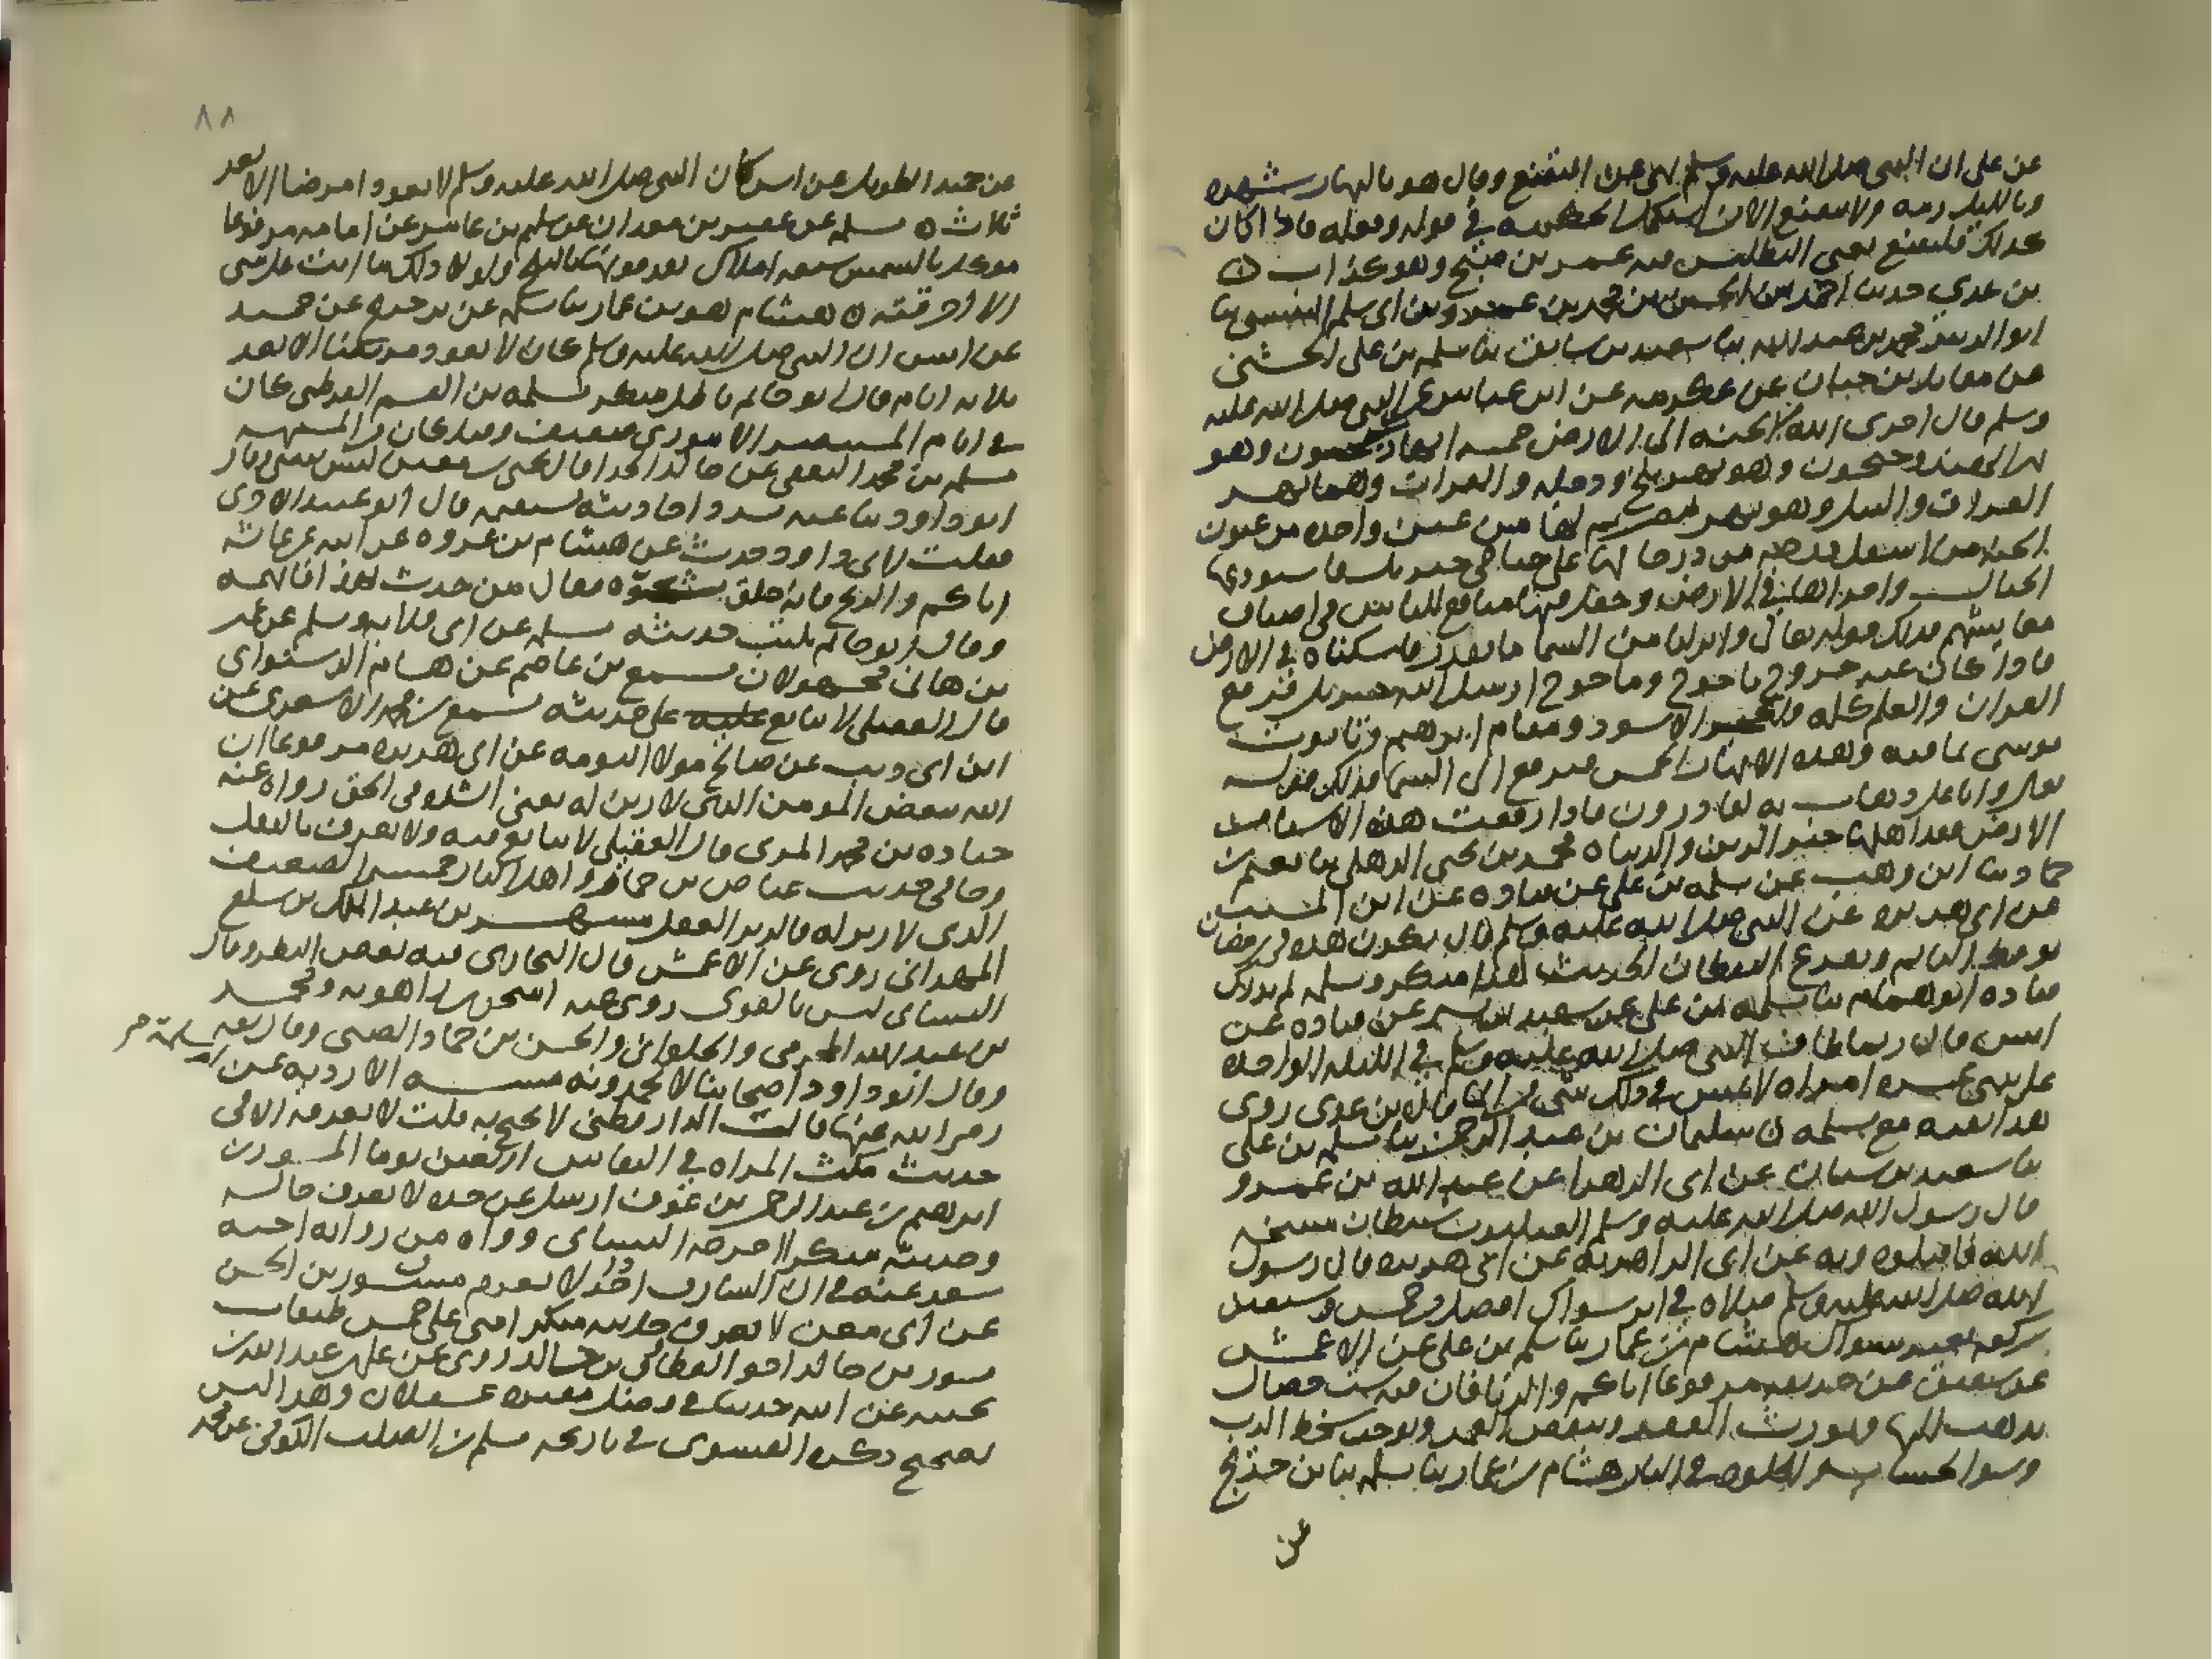 عن علي ان النبي صلى الله عليه وسلم نهى عن التقنع وقال هو بالنهار شهره
وبالليل ريبه ولا يتقنع الا من استكمل الحكمه في قوله وفعله فاذا كان
كذلك فليتقنع يعني التطليس فيه عمر بن صبح وهو كذاب
بن عدي حدثنا احمد بن الحسن بن محمد بن عمرو بن ابي سلمه التنيسي ثنا
ابو الدين محمد بن عبد الله ثنا سعيد بن سابق ثنا مسلمه بن علي الخشني
عن مقاتل بن حيان عن عكرمه عن ابن عباس عن النبي صلى الله عليه
وسلم قال اجرى الله من الجنه الى الارض خمسه انهار سيحون وهو
نهر الهند وجيحون وهو نهر بلخ ودجله والفرات وهما نهر
العراق والنيل وهو نهر مصر لها من عين واحده من عيون
الجنه من اسفل درجه من درجاتها على جناحي جبريل فاستودعها
الجبال واجراها في الارض وجعل فيها منافع للناس في اصناف
معايشهم فذلك قوله تعالى وانزلنا من السما ما بقدر فاسكناه في الارض
فاذا كان عند خروج ياجوج وماجوج ارسل الله جبريل فرفع
القران والعلم كله والحجر الاسود ومقام ابرهيم وتابوت
موسى بما فيه وهذه الانهار الخمس فيرفع الى السما فذلك قوله
تعالى وانا على ذهاب به لقادرون فاذا رفعت هذه الاشيا من
الارض فقد اهلها خير الدين والدنيا محمد بن يحيى الذهلي ثنا نعيم بن
حماد ثنا ابن وهب عن مسلمه بن علي عن قتاده عن ابن المسيب
عن ابي هريره عن النبي صلى الله عليه وسلم قال يكون هده في رمضان
توقظ النايم وتفزع اليقظان الحديث هذا منكر ومسلمه لم يدرك
قتاده ابو همام ثنا مسلمه بن علي عن سعيد بن بشير عن قتاده عن
انس قال ربما طاف النبي صلى الله عليه وسلم في الليله الواحده
على ثنتي عشره امراه لا يمس في ذلك شي من الما قال بن عدي روى
هذا بقيه مع مسلمه سليمان بن عبد الرحمن ثنا مسلمه بن علي
ثنا سعيد بن سنان عن ابي الزاهريه عن عبد الله بن عمرو
قال رسول الله صلى الله عليه وسلم شيطان مسخه
الله فاقتلوه وبه عن ابي الزاهريه عن ابي هريره قال رسول
الله صلى الله عليه وسلم صلاه في اثر سواك افضل من خمس وسبعين
ركعه بغير سواك هشام بن عمار ثنا مسلمه بن علي عن الاعمش
عن شقيق عن حذيفه مرفوعا اياكم والزنا فان فيه ست خصال
يذهب البها ويورث الفقر وينقص العمر ويوجب سخط الرب
وسوا الحساب والخلود في النار هشام بن عمار ثنا مسلمه ثنا بن جريج
عن
٨٨
عن حميد الطويل عن انس كان النبي صلى الله عليه وسلم لا يعود مريضا الا بعد
ثلاث مسلمه عن عفير بن معدان عن سليم بن عامر عن ابي امامه مرفوعا
موكل بالشمس سبعه املاك يرمونها بالثلج ولولا ذلك ما اتت على شي
الا احرقته هشام هو بن عمار ثنا مسلمه عن بن جريج عن حميد
عن انس ان النبي صلى الله عليه وسلم كان لا يعود مريضا الا بعد
ثلاثه ايام قال ابو حاتم باطل منكر مسلمه بن القسم القرطبي كان
في ايام المستنصر الاموي ضعيف وقيل كان من المشبهه
مسلمه بن محمد الثقفي عن خالد الحذا قال يحيى بن معين ليس بشي وقال
ابو داود ثنا عنه مسدد احاديثه مستقيمه قال ابو عبيد الاجري
فقلت لابي داود حدث عن هشام بن عروه عن ابيه عن عائشه
اياكم والزنج فانه خلق مشوه فقال من حدث بهذا فاتهمه
وقال ابو حاتم يكتب حديثه مسلمه عن ابي قلابه ومسلمه عن عمر
بن هاني مجهولان مسمع بن عاصم عن هشام الدستواي
قال العقيلي لا يتابع على حديثه مسمع بن محمد الاشعري عن
ابن ابي ذيب عن صالح مولى التومه عن ابي هريره مرفوعا ان
الله يبغض المومن الذي لا زبر له يعني الشده في الحق رواه عنه
حباده بن محمد المري قال العقيلي لا يتابع عليه ولا يعرف بالنقل
وجا في حديث عياض بن حمار واهل النار خمسه الضعيف
الذي لا زبر له قال زبر العقل مسهر بن عبد الملك بن سلع
الهمداني روى عن الاعمش قال البخاري فيه بعض النظر وقال
النسائي ليس بالقوي روى عنه اسحق بن راهويه ومحمد
بن عبد الله المخرمي والحلواني والحسن بن حماد الضبي وقال ثقه
وقال ابو داود اصحابنا لا يحمدونه مسه الازديه عن ام سلمة
رضي الله عنها قال الدارقطني لا يحتج بها قلت لا يعرف الا في
حديث مكث المراه في النفاس اربعين يوما المسور بن
ابرهيم بن عبد الرحمن بن عوف ارسل عن جده لا يعرف حاله
وحديثه منكر اخرجه النسائي ورواه من روايه اخيه
سعد عنه في ان السارق اذا حد لا يغرم مسور بن الحسن
عن ابي معن لا يعرف حديثه منكر امتي على خمس طبقات
مسور بن خالد اخو العطاف بن خالد روى عن علي بن عبد الله بن
بحينه عن ابيه حديثا في فضل مقبره عسقلان وهذا ليس
بصحيح ذكره الفسوي في تاريخه مسلم بن الصلت الكوفي عن محمد